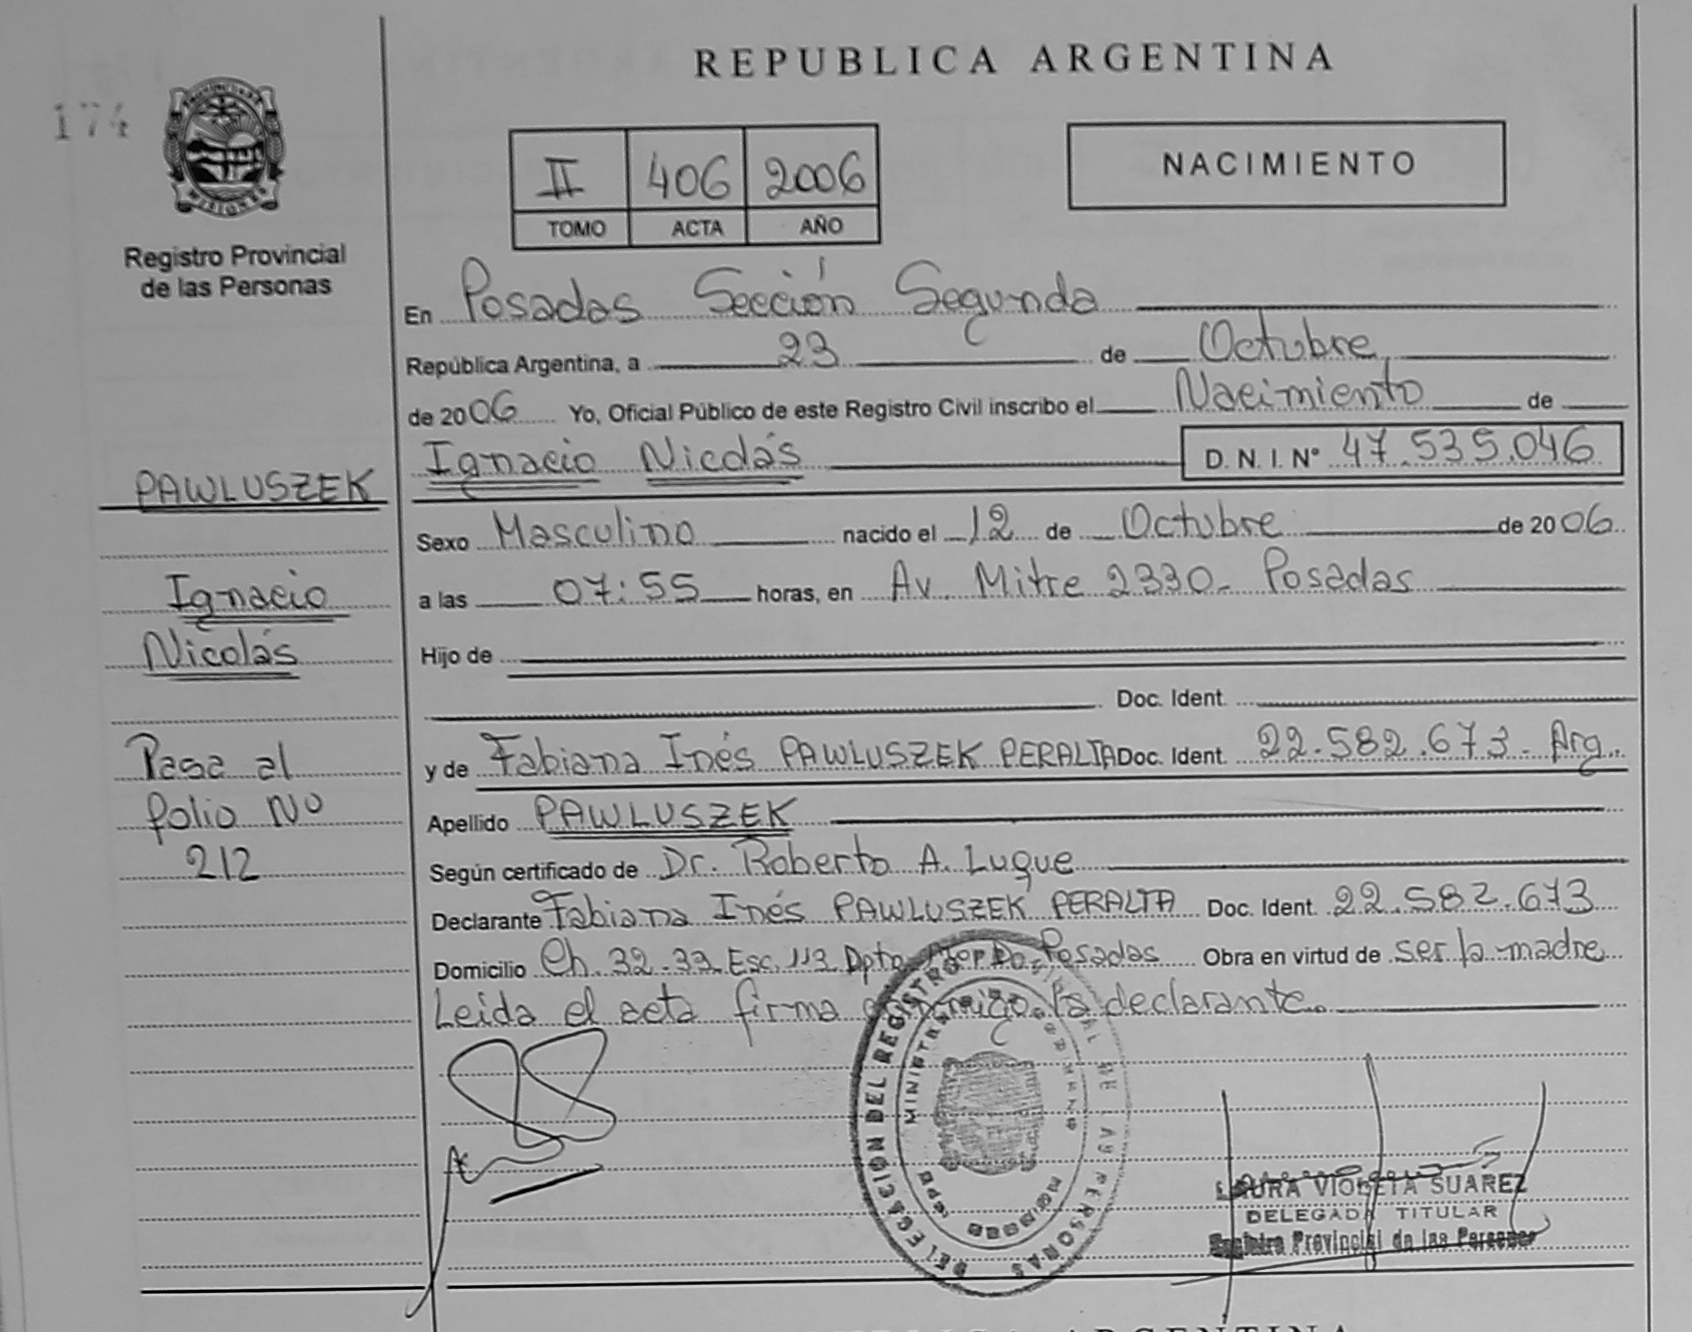 REPUBLICA ARGENTINA
174
MISIONES
Registro Provincial
de las Personas
II 406 2006
TOMO ACTA AÑO
NACIMIENTO
En Posadas Sección Segunda
República Argentina, a 23 de Octubre
de 2006 Yo, Oficial Público de este Registro Civil inscribo el Nacimiento de
Ignacio Nicolás D. N. I. N° 47.535.046
PAWLUSZEK
Sexo Masculino nacido el 12 de Octubre de 2006
a las 07:55 horas, en Av. Mitre 2330- Posadas
Ignacio
Nicolás
Hijo de
Doc. Ident.
y de Fabiana Inés PAWLUSZEK PERALTA Doc. Ident. 22.582.673- Arg.
Pasa al
folio Nº
212
Apellido PAWLUSZEK
Según certificado de Dr. Roberto A. Luque
Declarante Fabiana Inés PAWLUSZEK PERALTA Doc. Ident. 22.582.673
Domicilio Ch. 32-33 Esc. 113 Dpto Posadas Obra en virtud de ser la madre
Leida el acta firma conmigo la declarante.
DELEGACION DEL REGISTRO PROVINCIAL DE LAS PERSONAS
LAURA VIOLETA SUAREZ
DELEGADA TITULAR
Registro Provincial de las Personas
ARGENTINA